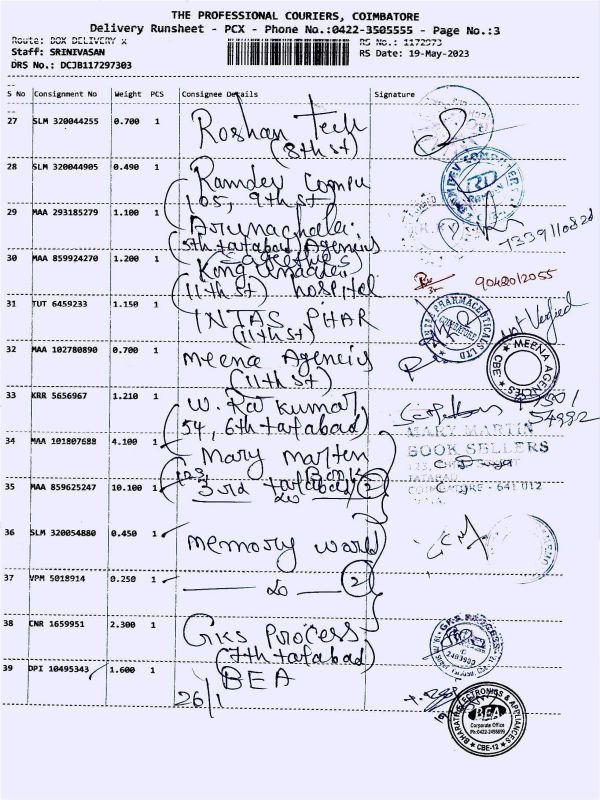 THE PROFESSIONAL COURIERS, COIMBATORE
Delivery Runsheet - PCX - Phone No.:0422-3505555 - Page No.:3
Route: BOX DELIVERY x RS No.: 1172973
Staff: SRINIVASAN RS Date: 19-May-2023
DRS No.: DCJB117297303
S No Consignment No Weight PCS Consignee Details Signature
27 SLM 320044255 0.700 1 Roshan Tech
(8th st)
28 SLM 320044905 0.490 1 Ramdev Compu
105, 9th st)
29 MAA 293185279 1.100 1 Arunachala
5th tatabad Agencies
7339110828
30 MAA 859924270 1.200 1 King
(11th st) hospital
9042012055
31 TUT 6459233 1.150 1 INTAS PHAR
(11th st)
not Verified
32 MAA 102780890 0.700 1 Meena Agencies
(11th st)
MEENA AGENCIES
CBE
33 KRR 5656967 1.210 1 W. Raj Kumar
54, 6th tatabad)
54982
34 MAA 101807688 4.100 1 Mary Marten
Book
MARY MARTIN
BOOK SELLERS
35 MAA 859625247 10.100 1 3rd tatabad) 2
COIMBATORE - 641 012
36 SLM 320054880 0.450 1 memory world
37 VPM 5018914 0.250 1 do 2
38 CNR 1659951 2.300 1 GKS Process
(7th tatabad)
39 DPI 10495343 1.600 1 BEA
26/1
BHARATH ELECTRONICS & APPLIANCES
BEA
Corporate Office
CBE-12